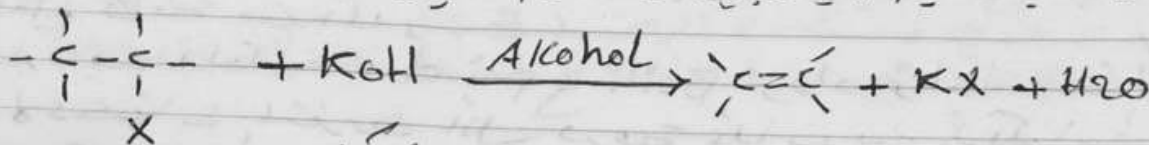 -C-C- + KOH Alcohol → C=C + KX + H2O
X